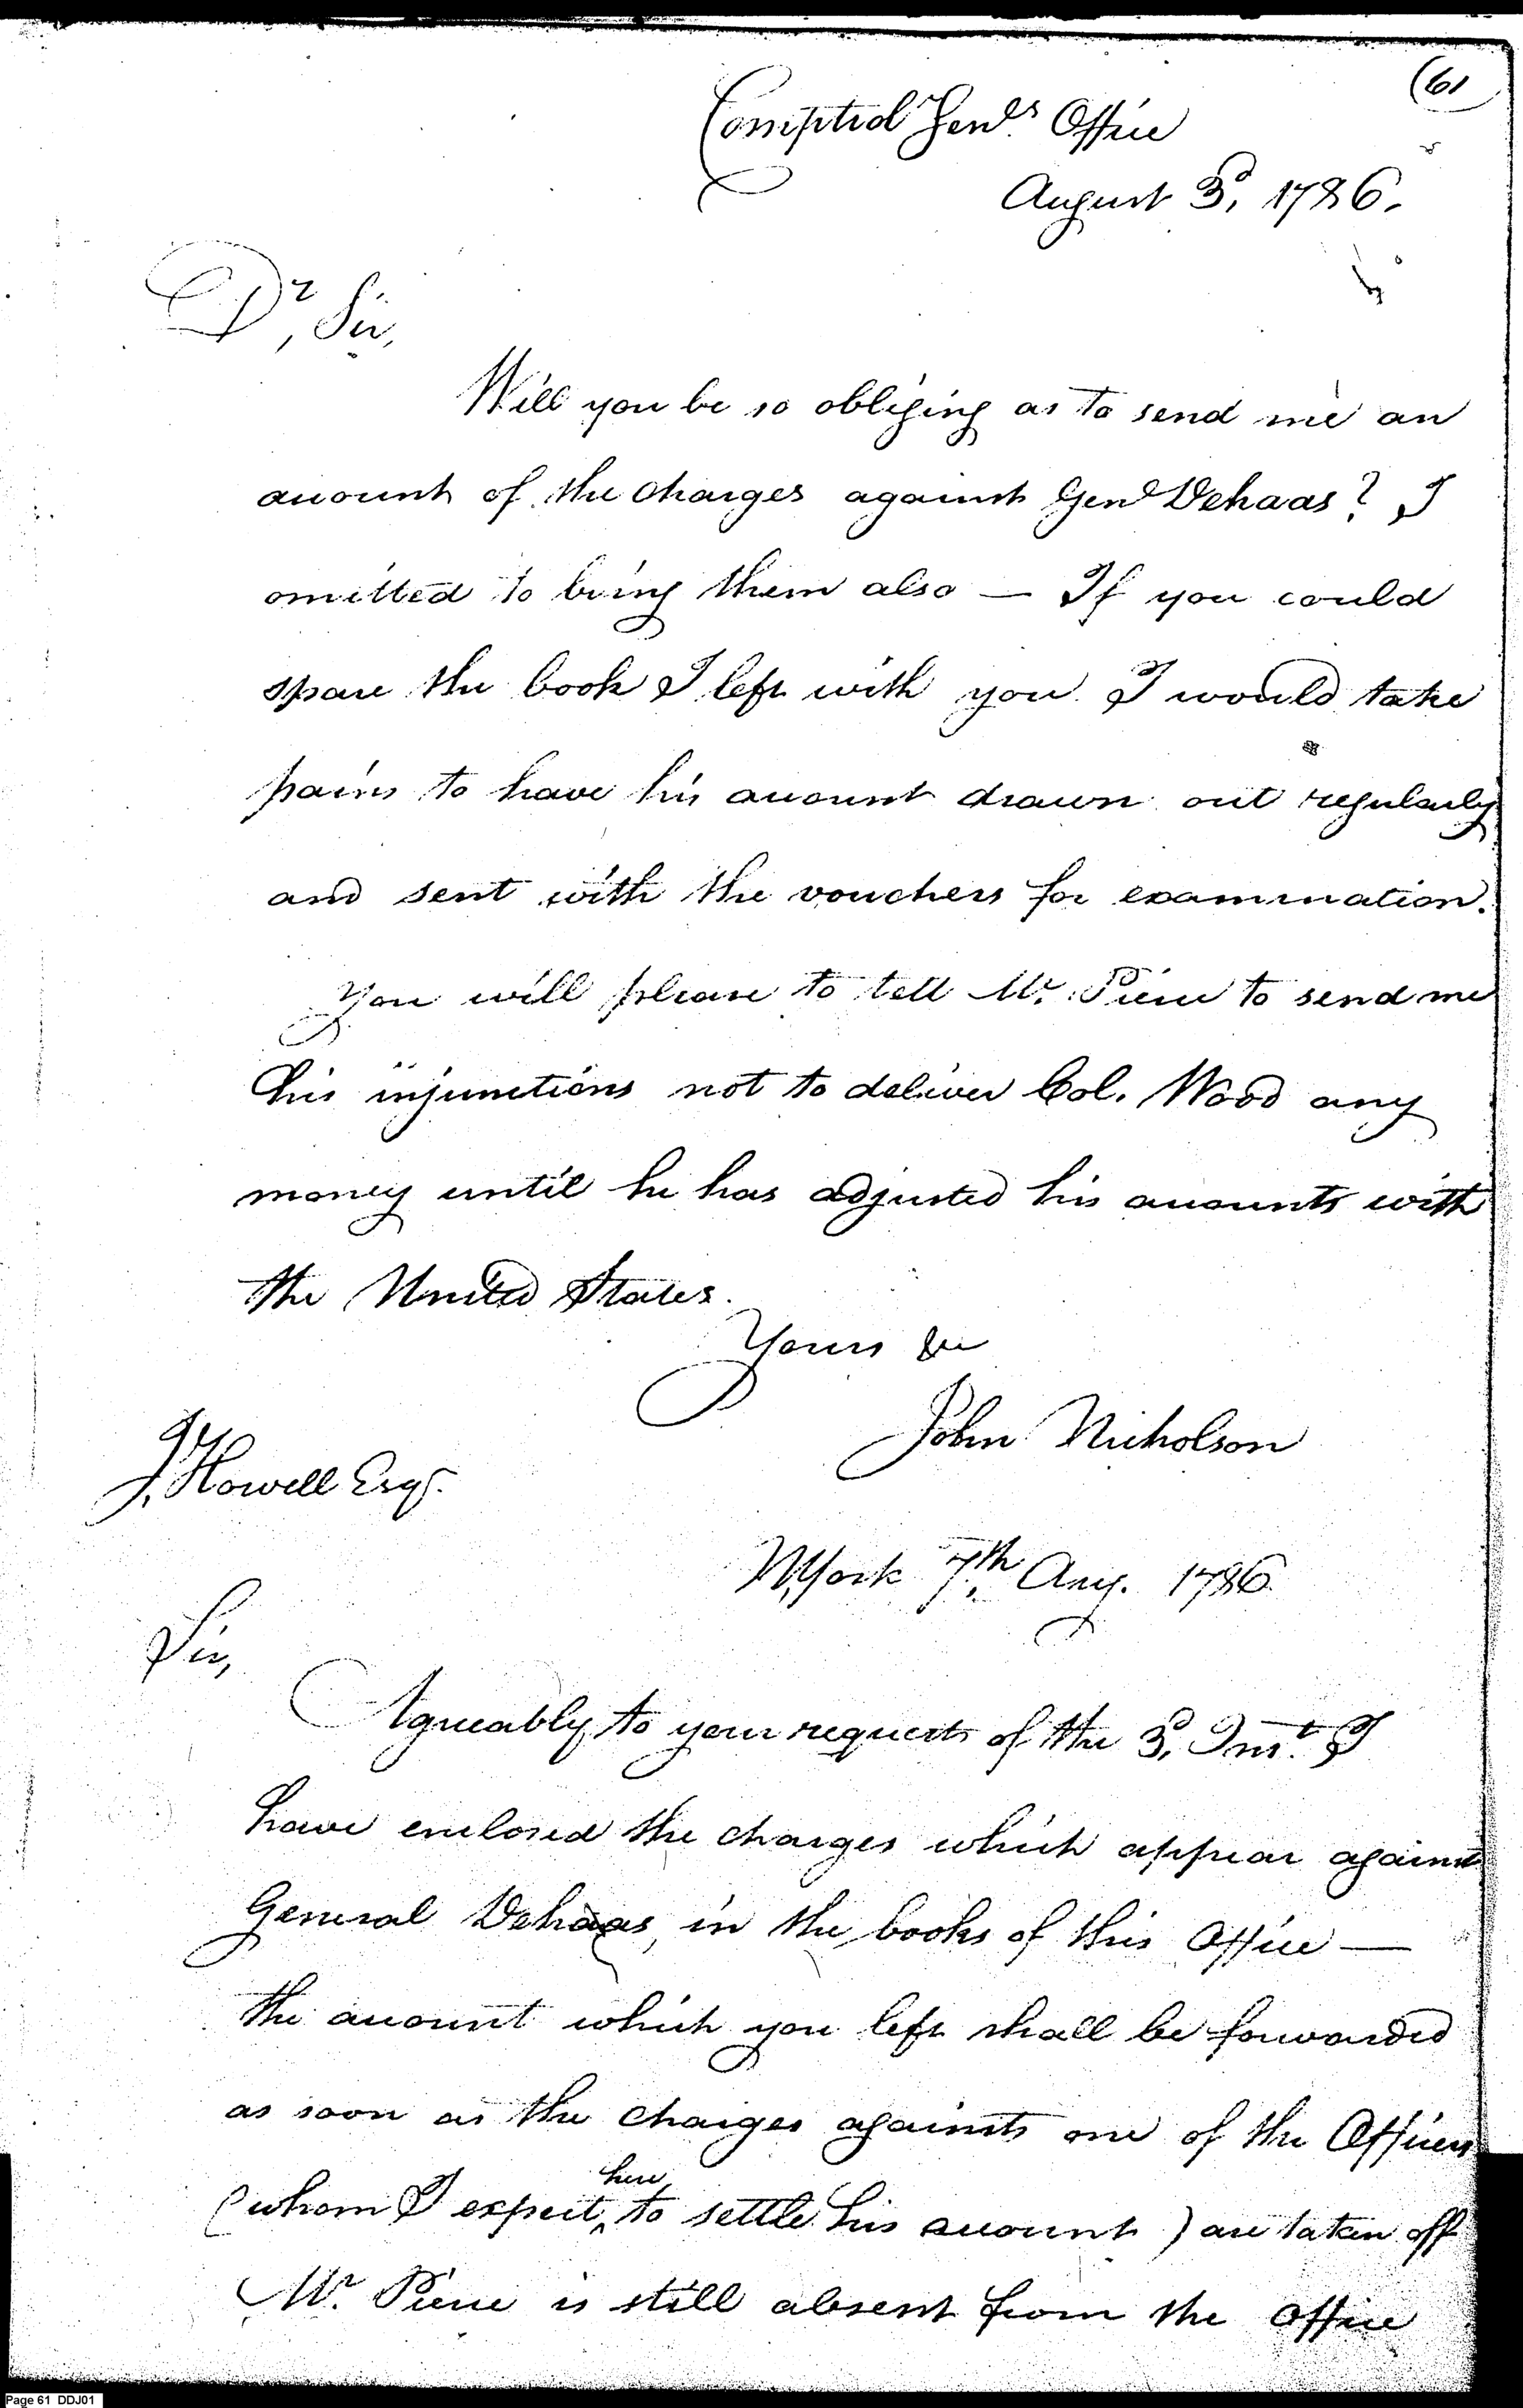 (61
Comptrol Genls. Office
August 3d, 1786.
Dr, Sir,
Will you be so obliging as to send me an
account of the charges against Genl Dehaas? I
omitted to bring them also — If you could
spare the book I left with you I would take
pains to have his account drawn out regularly
and sent with the vouchers for examination.
You will please to tell Mr. Pierce to send me
his injunctions not to deliver Col. Wood any
money until he has adjusted his accounts with
the United States.
Yours &c
John Nicholson
J. Howell Esqr.
N,York 7th, Aug. 1786
Sir,
Agreeably to your requests of the 3d, Inst. I
have enclosed the charges which appear against
General Dehaas, in the books of this Office —
the account which you left shall be forwarded
as soon as the charges against one of the Officers
(whom I expect here to settle his account) are taken off
Mr. Pierce is still absent from the Office
Page 61 DDJ01